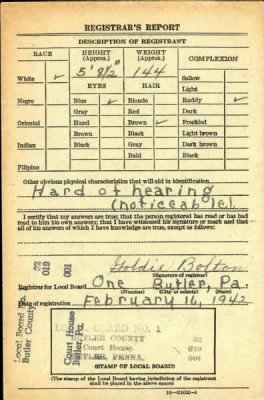 REGISTRAR'S REPORT
DESCRIPTION OF REGISTRANT
RACE HEIGHT (Approx.) WEIGHT (Approx.) COMPLEXION
White ✓ 5' 8½" 144 Sallow
EYES HAIR Light
Negro Blue ✓ Blonde Ruddy ✓
Gray Red Dark
Oriental Hazel Brown ✓ Freckled
Brown Black Light brown
Indian Black Gray Dark brown
Bald Black
Filipino
Other obvious physical characteristics that will aid in identification
Hard of hearing
(noticeable).
I certify that my answers are true; that the person registered has read or has had
read to him his own answers; that I have witnessed his signature or mark and that
all of his answers of which I have knowledge are true, except as follows:
Goldie Bolton
(Signature of registrar)
Registrar for Local Board One Butler, Pa.
(Number) (City or county) (State)
Date of registration February 16, 1942
LOCAL BOARD NO. 1
BUTLER COUNTY 32
Court House 019
BUTLER, PENNA. 001
(STAMP OF LOCAL BOARD)
(The stamp of the Local Board having jurisdiction of the registrant
shall be placed in the above space)
Local Board No.
Butler County
Court House
Butler, Pa.
32
019
001